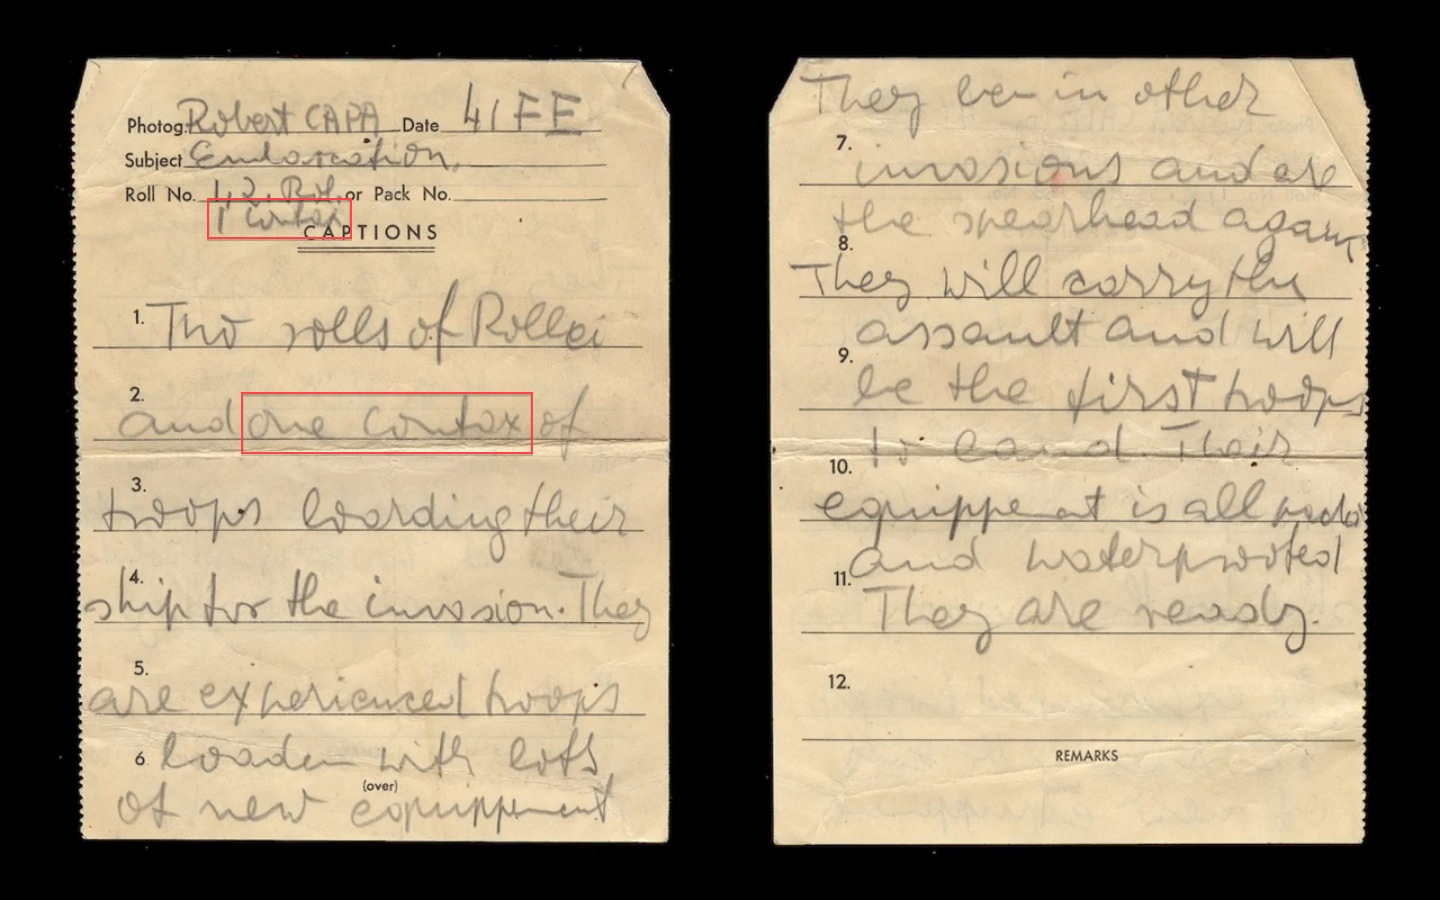 Photog. Robert CAPA Date LIFE
Subject Embarcation,
Roll No. 1, 2. Rol. or Pack No.
1 Contax
CAPTIONS
1. Two rolls of Rollei
2. and one Contax of
3. troops loarding their
4. ship for the invasion. They
5. are experienced troops
6 loaden with lots,
(over)
of new equippement
They ben in other
7. invasions and are
the spearhead again,
8. They will carry the
assault and will
9. be the first troops
to land. Their
10. equippement is all
and waterproofed
11. They are ready.
12.
REMARKS